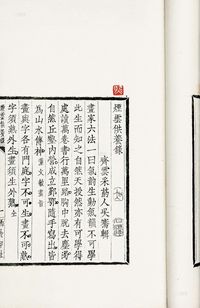 煙雲供養錄
齊雲采藥人輯
畫家六法一曰氣韵生動氣韻不可學
此生而知之自然天授然亦有可學得
處讀萬卷書行萬里路胸中脫去塵濁
自然丘壑内營成立鄞鄂隨手寫出皆
為山水傳神董文敏畫旨
畫與字各有門庭字可生畫不可不熟
字須熟外生畫須生外熟仝